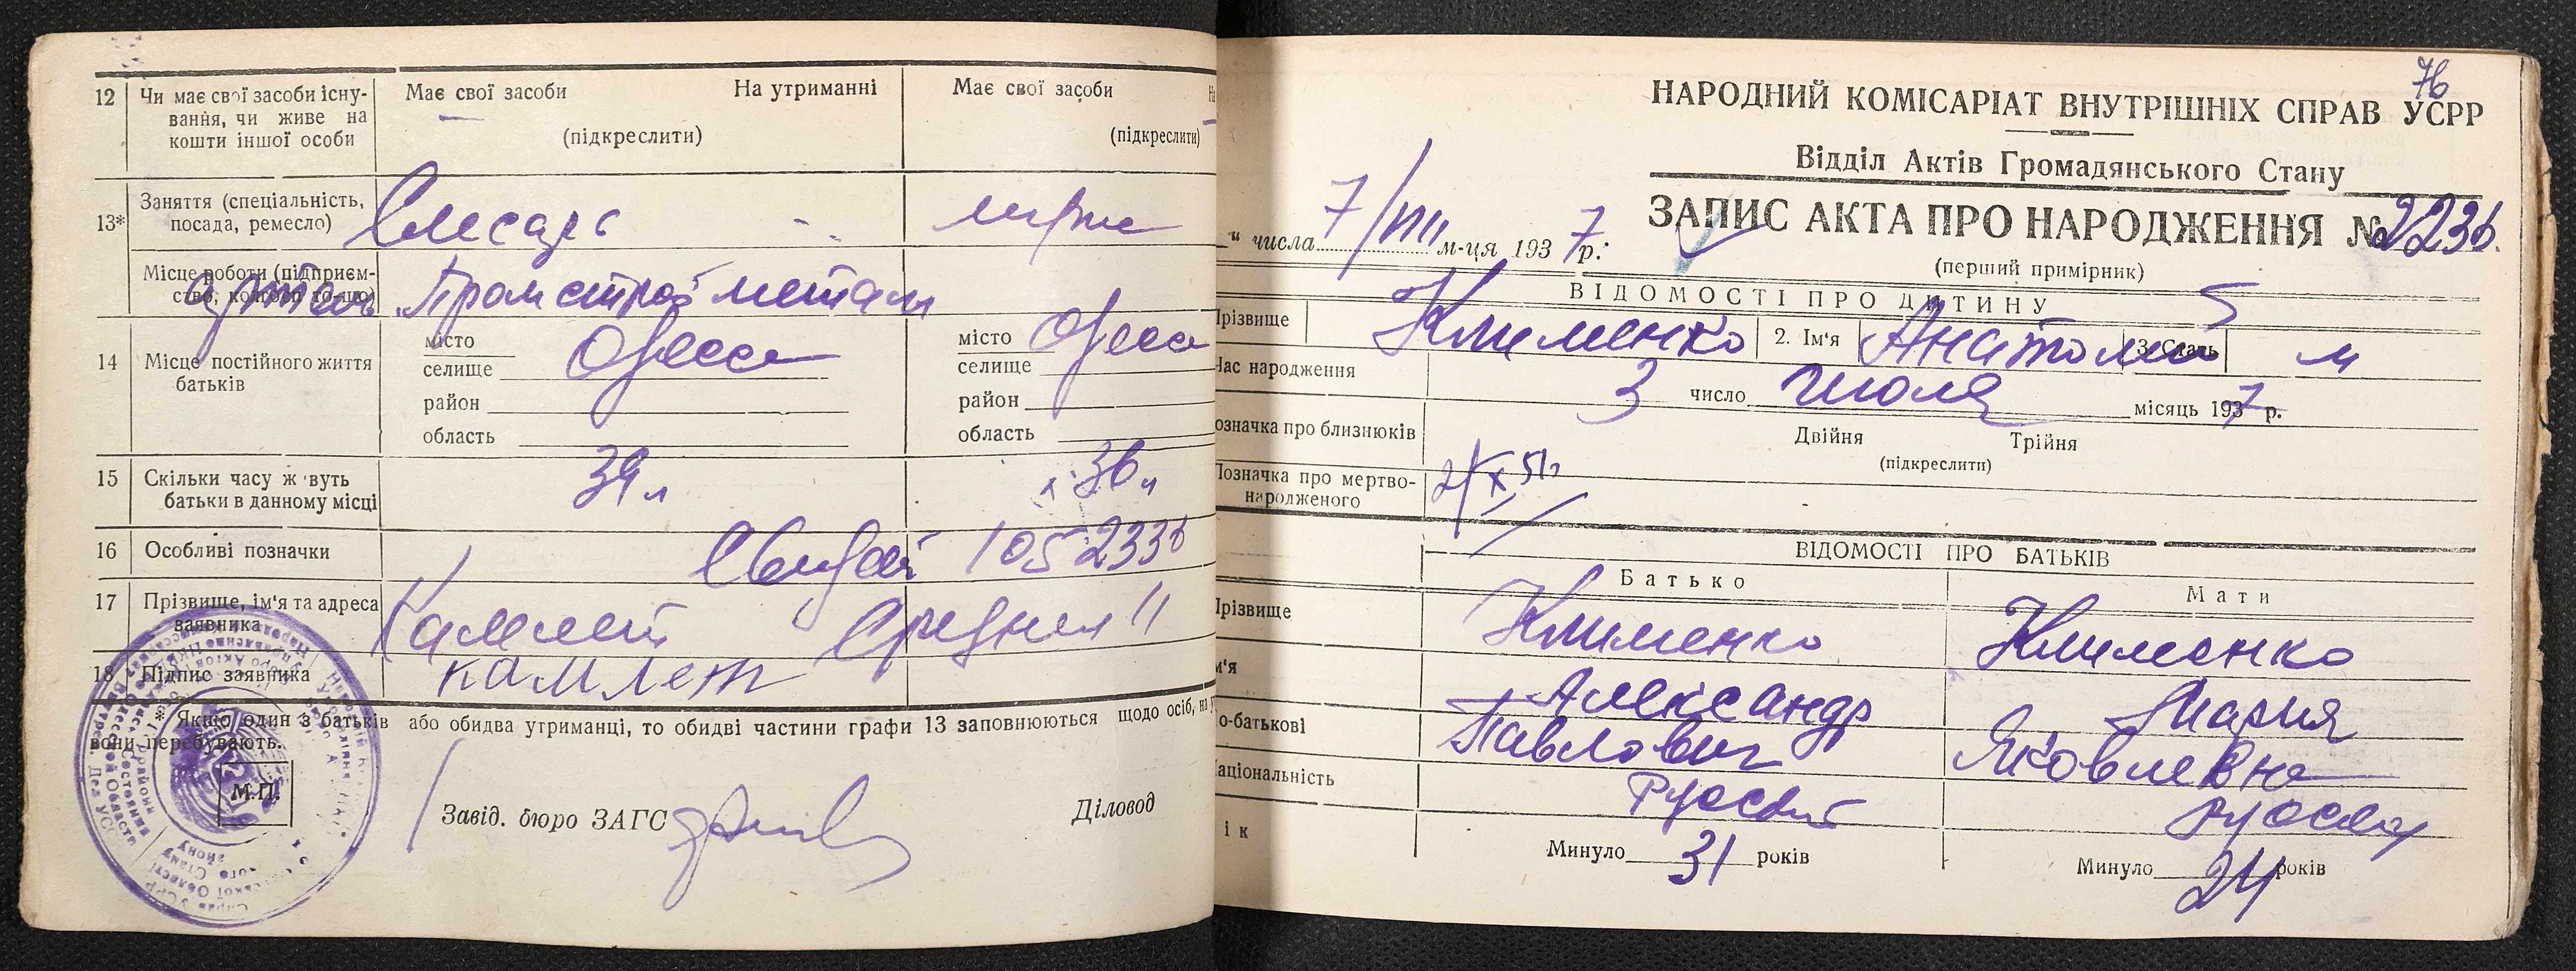 12 Чи має свої засоби існу-
вання, чи живе на
кошти іншої особи
Має свої засоби На утриманні
(підкреслити)
Має свої засоби
(підкреслити)
13* Заняття (спеціальність,
посада, ремесло)
Слесарь
Місце роботи (підприєм-
ство, колгосп то-що)
артель Промстройметал
14 Місце постійного життя
батьків
місто Одесса
селище
район
область
місто Одесса
селище
район
область
15 Скільки часу ж вуть
батьки в данному місці
16 Особливі позначки
17 Прізвище, ім'я та адреса
заявника
Камлет Средняя 11
18 Підпис заявника
камлет
* Якщо один з батьків або обидва утриманці, то обидві частини графи 13 заповнюються щодо осіб, на
вони перебувають.
М.П.
Завід. бюро ЗАГС
Діловод
76
НАРОДНИЙ КОМІСАРІАТ ВНУТРІШНІХ СПРАВ УСРР
Відділ Актів Громадянського Стану
ЗАПИС АКТА ПРО НАРОДЖЕННЯ № 2236.
(перший примірник)
" числа 7/VIII м-ця 1937 р.:
ВІДОМОСТІ ПРО ДИТИНУ
Прізвище Клименко 2. Ім'я Анатолий 3. Стать м
Час народження 3 число июля місяць 1937 р.
означка про близнюків Двійня Трійня
(підкреслити)
Позначка про мертво-
народженого
ВІДОМОСТІ ПРО БАТЬКІВ
Батько Мати
Прізвище Клименко Клименко
м'я Александр Мария
о-батькові Павлович Яковлевна
аціональність Русский
ік Минуло 31 років Минуло 24 років